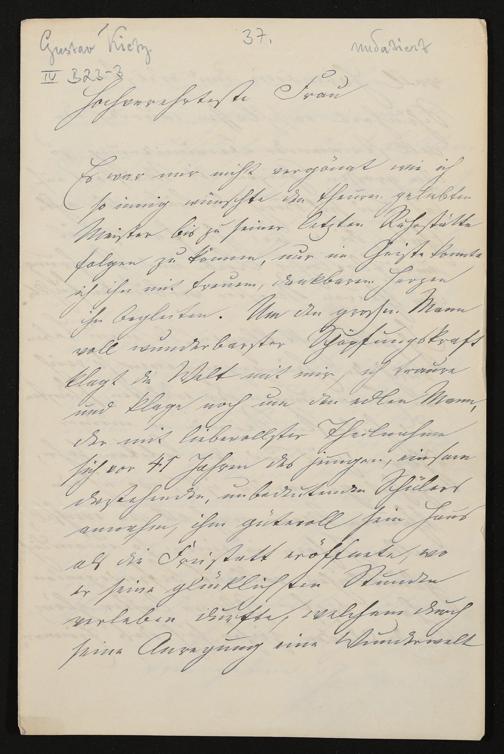 Gustav Kietz.
37.
undatiert
IV B23-3
Hochverehrteste Frau
Es war mir nicht vergönnt wie ich
so innig wünschte den theuren geliebten
Meister bis zu seiner letzten Ruhestätte
folgen zu können, nur im Geiste konnte
ich ihn mit treuem, dankbarem Herzen
ihn begleiten. Um den grossen Mann
voll wunderbarster Schöpfungskraft
klagt die Welt mit mir, ich traure
und klage noch um den edlen Mann,
der mit liebevollster Theilnahme
sich vor 41 Jahren des jungen, einsam
dastehenden, unbedeutenden Schülers
annahm, ihm gütevoll sein Haus
als die Freistatt eröffnete, wo
er seine glücklichsten Stunden
verleben durfte, welchem durch
seine Anregung eine Wunderwelt